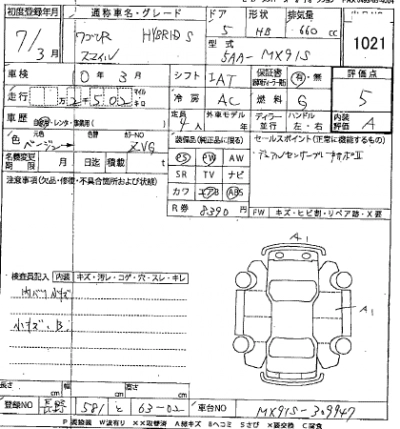 初度登録年月 通称車名・グレード ドア 形状 排気量
7/3月 ワゴンR HYBRID S 5 HB 660 cc
スマイル 型式 1021
5AA-MX91S
車検 10年3月 シフト IAT 保証書 有・無 評価点
走行 2 5 0 2 マイル キロ 冷房 AC 燃料 G 5
車歴 自家・レンタ・事業用( ) 定員 4人 外車モデル ディーラー 並行 ハンドル 左・右 内装評価 A
色 元色 ベージュ 色替 カラーNO ZVG 装備品(純正品に限る) セールスポイント(正常に機能するもの)
名義変更期限 月 日迄 積載 t PS PW AW デュアルセンサーブレーキサポートII
注意事項(欠品・修復・不具合箇所および状態) SR TV ナビ
カワ エアB ABS
R券 8390円 FW キズ・ヒビ割・リペア跡・X要
A1
検査員記入 内装 キズ・汚レ・コゲ・穴・スレ・キレ
内バリ小キズ A1
小キズ、B
長さ cm 幅 cm 高さ cm
登録NO 長野 581 と 63-02 車台NO MX91S-309947
P 要塗装 W波有り XX取替済 A線キズ Bヘコミ Sさび X要交換 C腐食